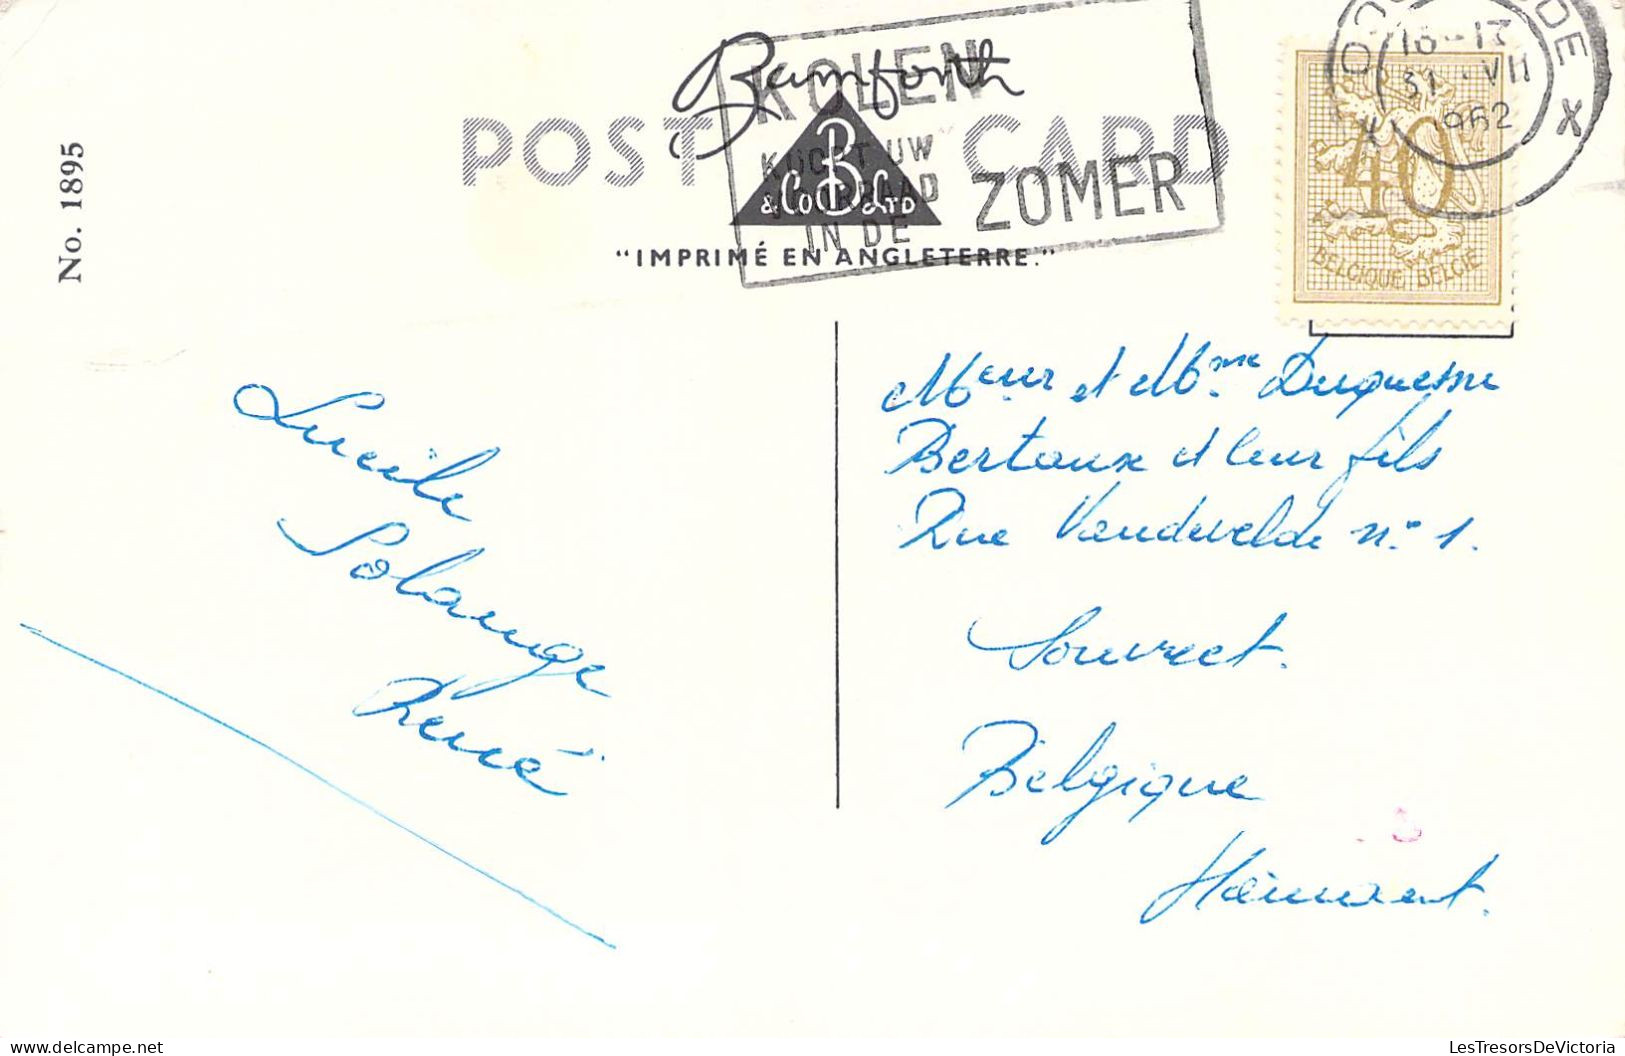 No. 1895
POST CARD
Bamforth
B
& Co B Ltd
"IMPRIMÉ EN ANGLETERRE."
KOLEN
KOOPT UW
VOORRAAD
IN DE ZOMER
16-17
31 VII
1962
X
40
BELGIQUE BELGIE
Lucile
Solange
René
Meur et Mme Duquesne
Bertaux et leur fils
Rue Vandevelde n° 1.
Souvret.
Belgique
Hainaut.
LesTresorsDeVictoria